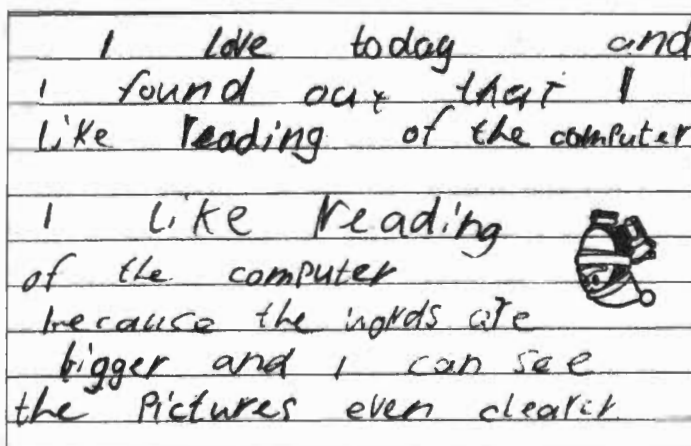 I love today and
I found out that I
like reading of the computer
I like reading
of the computer
because the words are
bigger and I can see
the Pictures even clearer